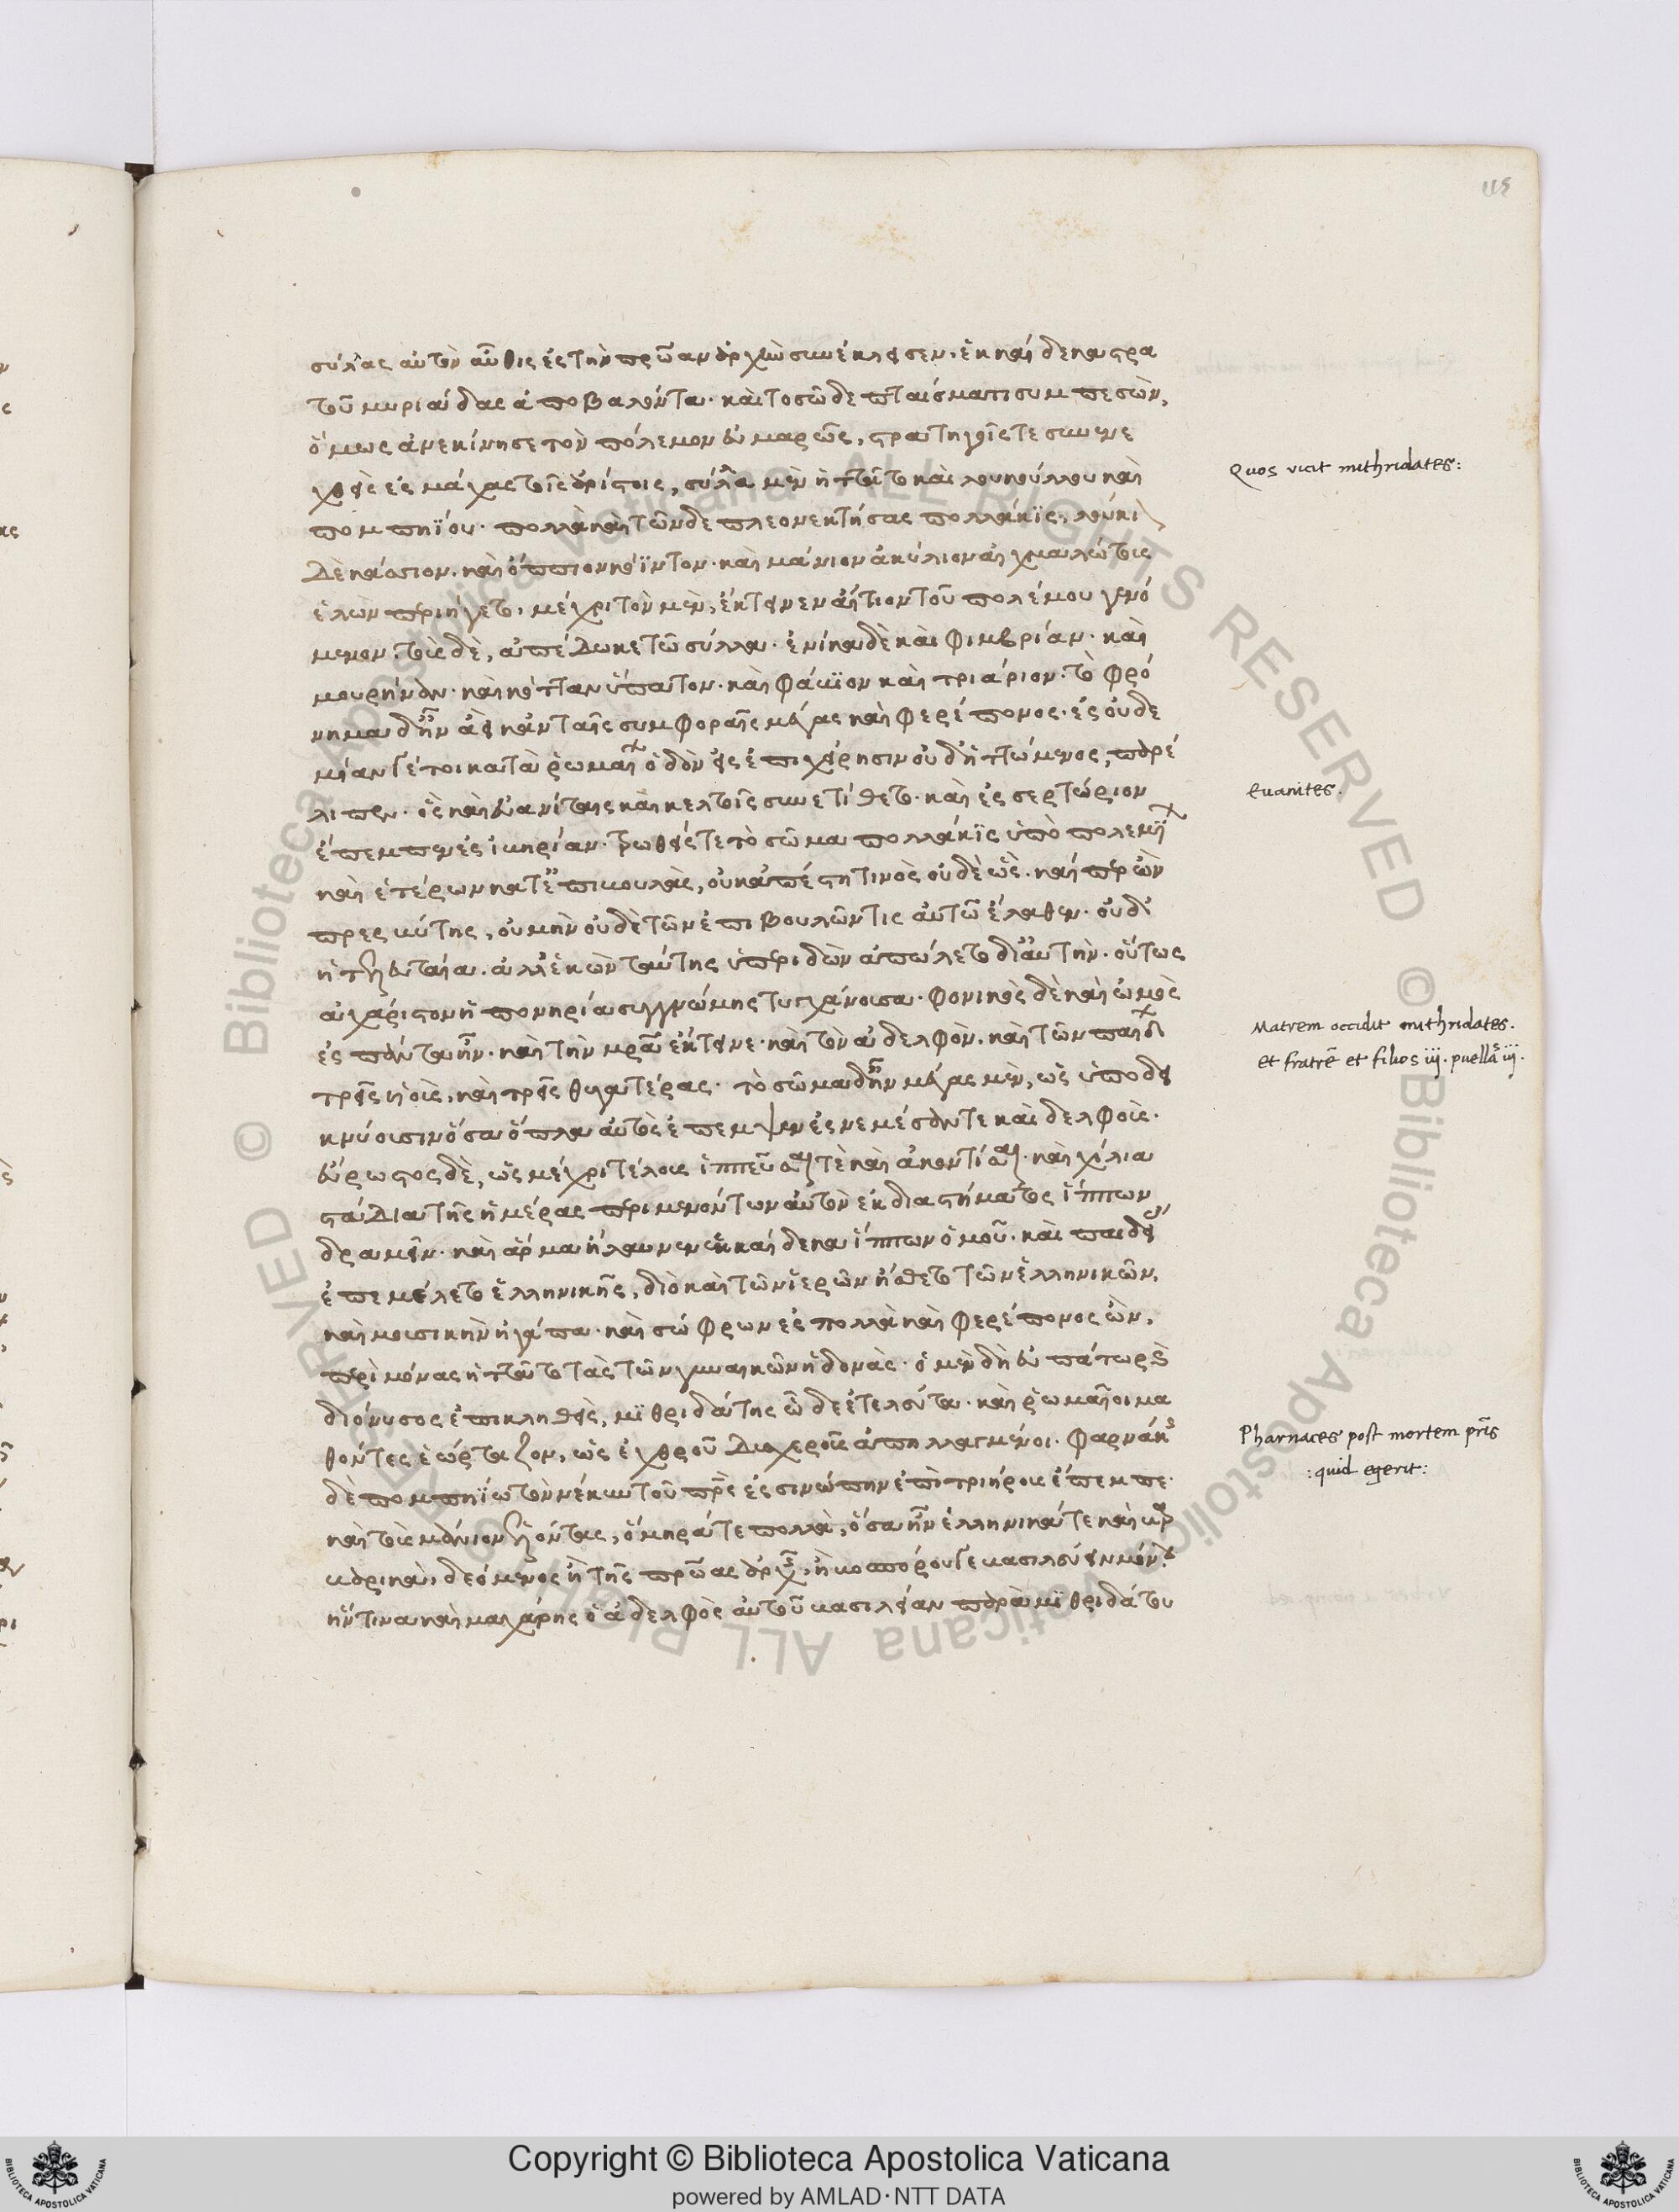 σύλλας αὐτὸν αὖθις ἐς τὴν πρῴαν ἀρχὴν συνέκλεισεν. ἑκκαίδεκα στρα
τοῦ μυριάδας ἀποβαλόντα. καὶ τοσῷδε πταίσματι συμπεσὼν,
ὅμως ἀνεκίνησε τὸν πόλεμον εὐμαρῶς, στρατηγοῖς τε συνενε
χθεὶς ἐς μάχας τοῖς ἀρίστοις, σύλλα μὲν ἡττᾶτο καὶ λουκούλλου καὶ
πομπηΐου. πολλὰ καὶ τῶνδε πλεονεκτήσας πολλάκϊς, λούκι
δὲ κάσσιον. καὶ ὄππιον κόϊντον. καὶ μάνιον ἀκύλιον αἰχμαλώτους
ἑλὼν περιήγετο, μέχρι τὸν μὲν, ἔκτεινεν αἴτιον τοῦ πολέμου γενό
μενον. τοὺς δὲ, ἀπέδωκε τῷ σύλλα. ἐνίκα δὲ καὶ φιμβρίαν. καὶ
μουρήναν. καὶ κότταν ὕπατον. καὶ φάβϊον καὶ τριάριον. τὸ φρό
νημα δ' ἦν ἀεὶ κἀν ταῖς συμφοραῖς μέγας καὶ φερέπονος. ἐς οὐδε
μίαν γέ τοι κατὰ ῥωμαίων ὁδὸν εἰς ἐπιχείρησιν οὐδ' ἡττώμενος, παρέ
λιπεν. ὃς καὶ εὐανίταις καὶ κελτοῖς συνετίθετο. καὶ ἐς σερτώριον
ἔπεμπεν ἐς ἰβηρίαν. τρωθείς τε τὸ σῶμα πολλάκϊς ὑπὸ πολεμίων
καὶ ἑτέρων κατ' ἐπιβουλὰς, οὐκ ἀπέστη τινὸς οὐδὲ ὣς. καίπερ ὢν
πρεσβύτης. οὐ μὴν οὐδὲ τῶν ἐπιβουλῶν τις αὐτῶ ἔλαθεν. οὐδ'
ἡ τελευταία. ἀλλ' ἑκὼν ταύτης ὑπεριδὼν ἀπώλετο δι' αὐτήν. οὕτως
ἀχάριστον ἡ πονηρία συγγνώμης τυγχάνουσα. φονικὸς δὲ καὶ ὠμὸς
ἐς πάντα ἦν. καὶ τὴν μρα ἔκτεινε. καὶ τὸν ἀδελφὸν. καὶ τῶν παίδων
τρεῖς υἱοὺς, καὶ τρεῖς θυγατέρας. τὸ σῶμα δ' ἦν μέγας μὲν, ὡς ὑποδει
κνύουσιν ὅσα ὅπλα αὐτὸς ἔπεμψεν ἐς νεμέσαν τε καὶ δελφούς.
εὔρωστος δὲ, ὡς μέχρι τέλους ἱππεῦσαί τε καὶ ἀκοντίσαι. καὶ χίλια
στάδια τῆς ἡμέρας περιμενόντων αὐτὸν ἐκ διαστήματος ἵππων
δραμεῖν. καὶ ἅρμα ἤλαυνεν ἑκκαίδεκα ἵππων ὁμοῦ. καὶ παιδείας
ἐπεμέλετο ἑλληνικῆς, διὸ καὶ τῶν ἱερῶν ᾔσθετο τῶν ἑλληνικῶν,
καὶ μουσικὴν ἠγάπα. καὶ σώφρων ἐς πολλὰ καὶ φερέπονος ὢν,
περὶ μόνας ἡττᾶτο τὰς τῶν γυναικῶν ἡδονάς. ὁ μὲν δὴ εὐπάτωρ καὶ
διόνυσος ἐπικληθεὶς, μϊθριδάτης ὧδε ἐτελεύτα. καὶ ῥωμαῖοι μα
θόντες ἑώρταζον, ὡς ἐχθροῦ δυσχεροῦς ἀπηλλαγμένοι. φαρνάκης
δὲ πομπηΐω τὸν νέκυν τοῦ πρς ἐς σινώπην ἐπὶ τριήρους ἔπεμπε.
καὶ τοὺς μάνιον ἑλόντας, ὅμηρά τε πολλὰ, ὅσα ἦν ἑλληνικά τε καὶ βαρ
βαρικὰ, δεόμενος ἢ τῆς πρῴας ἀρχῆς, ἢ βοσπόρου γε βασιλεύειν μόνου.
ἥντινα καὶ μαχάρης ὁ ἀδελφὸς αὐτοῦ βασιλείαν παρὰ μϊθριδάτου
Quos vicit mithridates:
Euanites.
Matrem occidit mithridates.
et fratrē et filios iij. puellas iij.
Pharnaces post mortem pris
: quid egerit :
Copyright © Biblioteca Apostolica Vaticana
powered by AMLAD·NTT DATA
© Biblioteca Apostolica Vaticana ALL RIGHTS RESERVED © Biblioteca Apostolica Vaticana ALL RIGHTS RESERVED